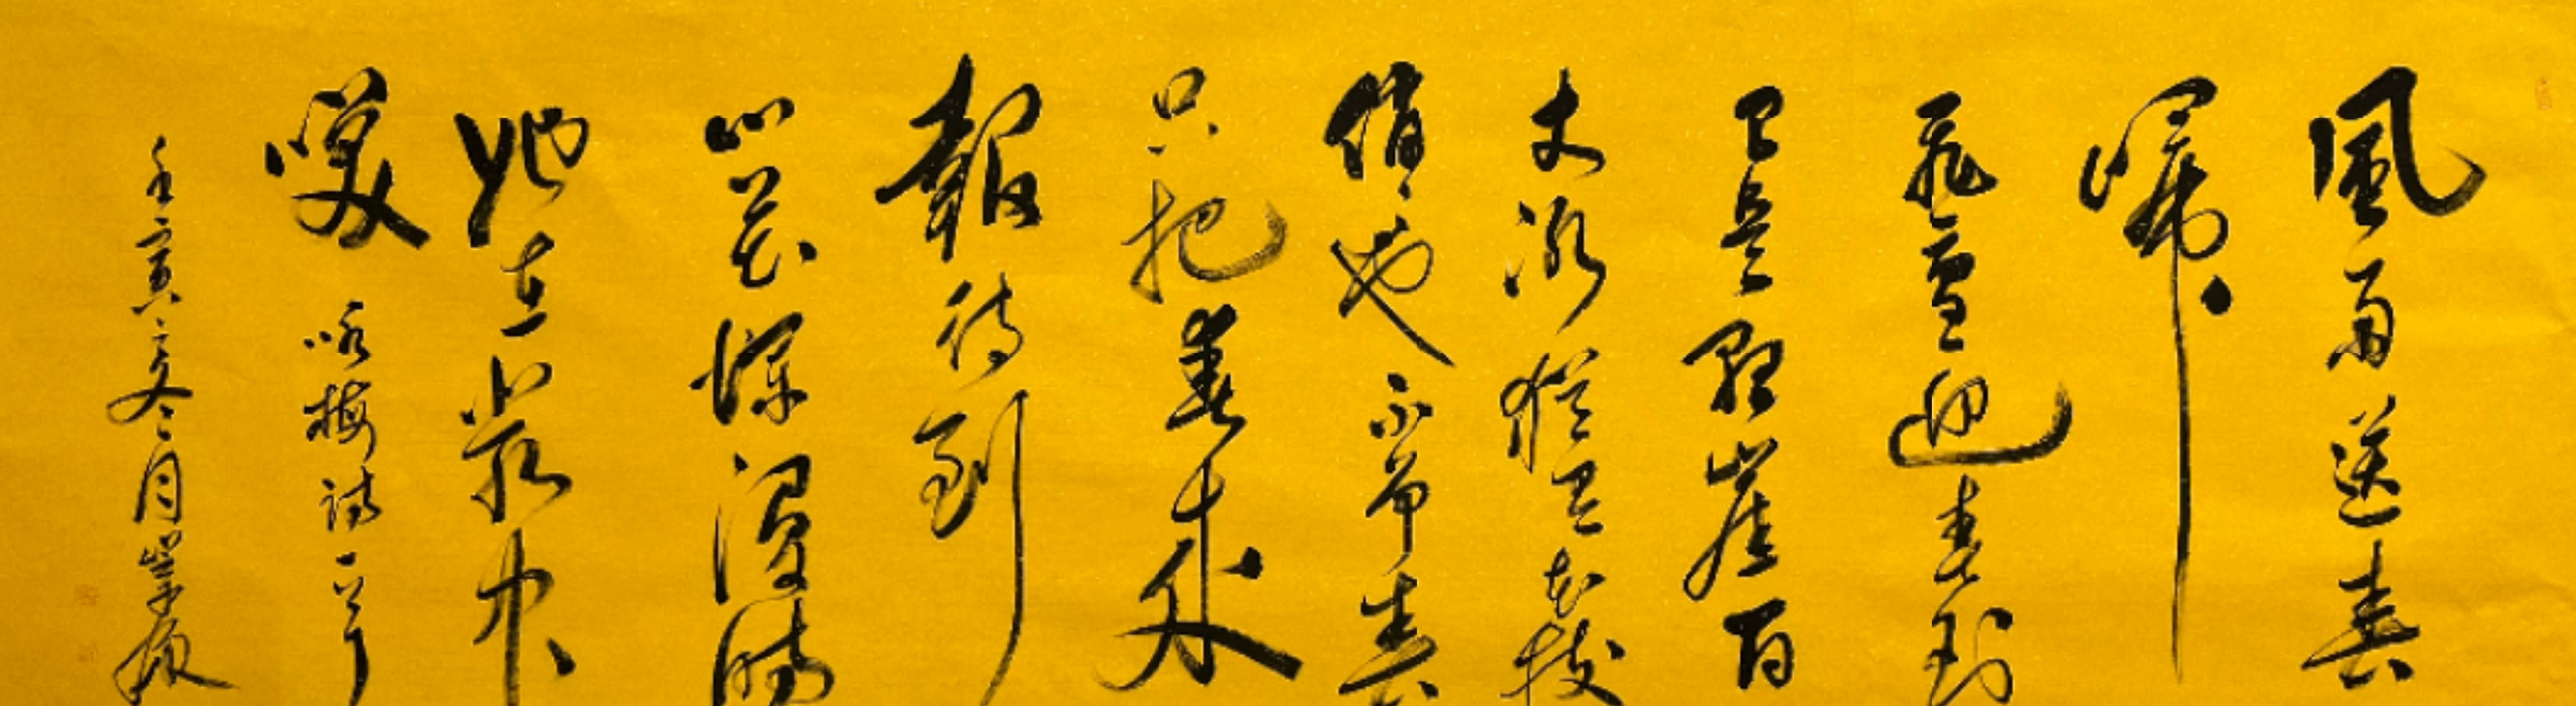 風雨送春
歸
飛雪迎春到
已是懸崖百
丈冰猶有花枝
俏也不爭春
只把春來
報待到
山花爛漫時
她在叢中
咲 咏梅詩一首
壬寅之冬月